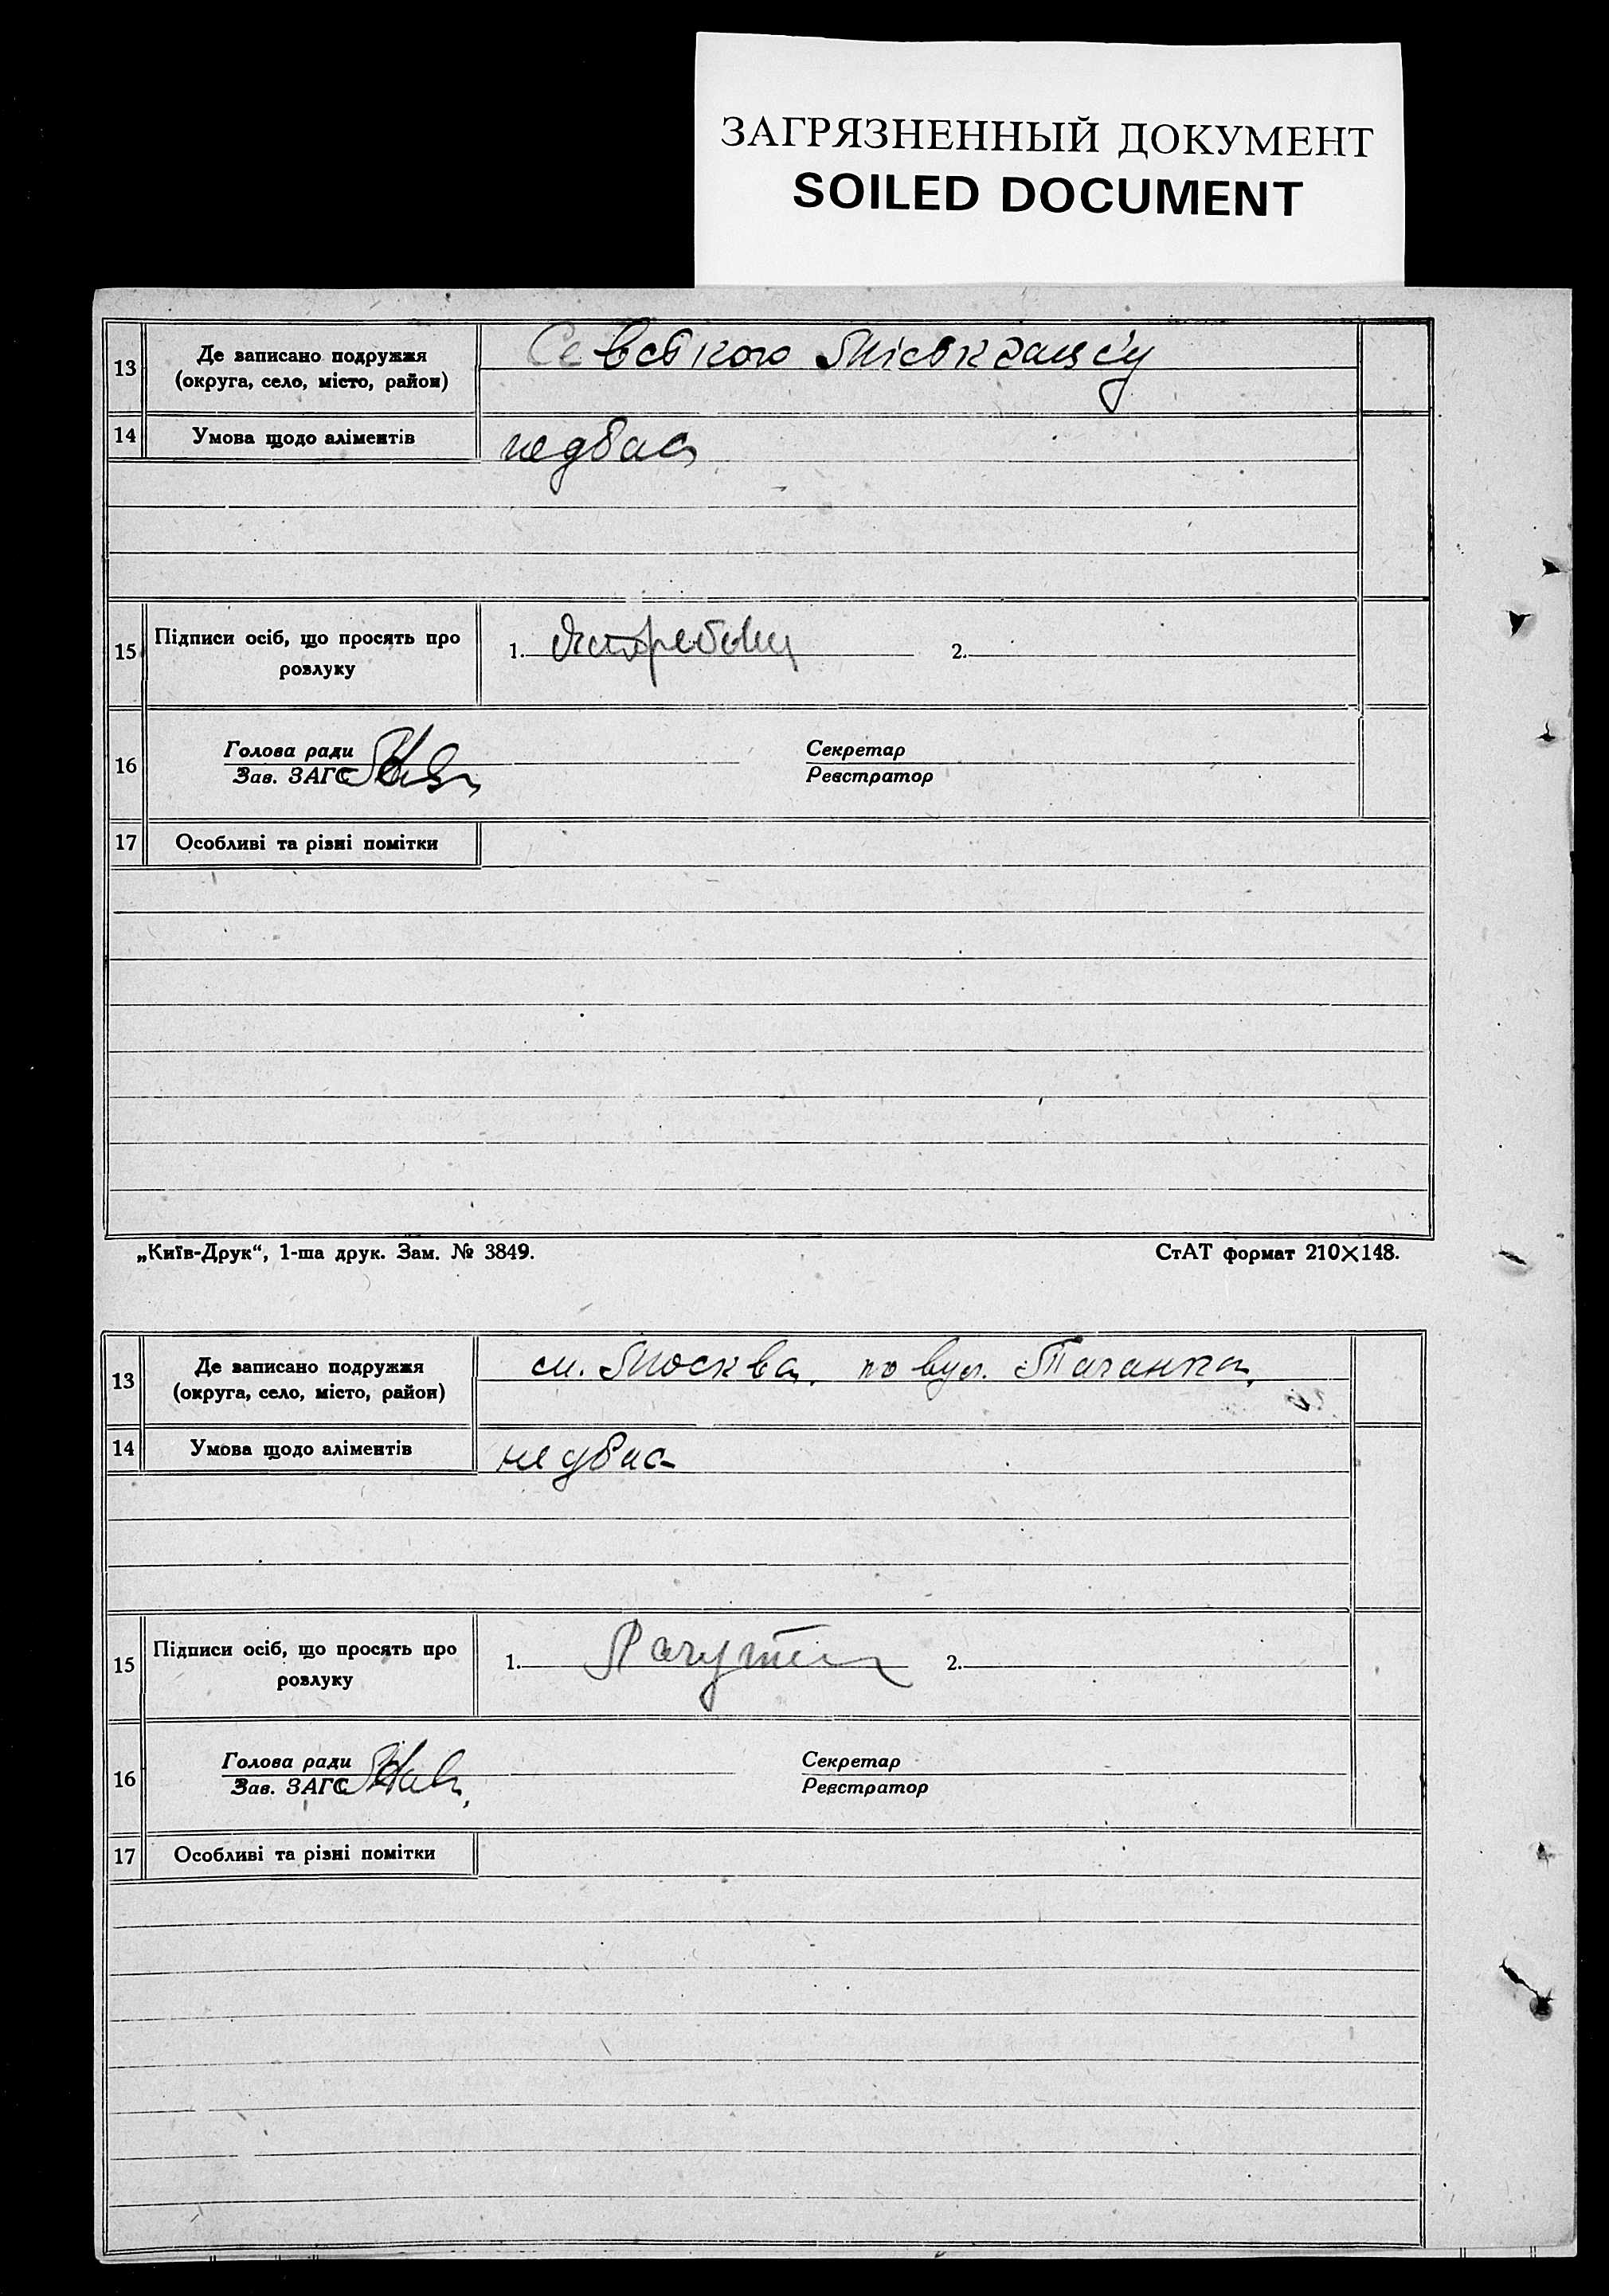 ЗАГРЯЗНЕННЫЙ ДОКУМЕНТ
SOILED DOCUMENT
13 Де записано подружжя
(округа, село, місто, район)
14 Умова щодо аліментів
15 Підписи осіб, що просять про
розлуку
1. 2.
16 Голова ради Секретар
Зав. ЗАГС Реєстратор
17 Особливі та різні помітки
„Київ-Друк“, 1-ша друк. Зам. № 3849. СтАТ формат 210×148.
13 Де записано подружжя м. Москва, по вул. Таганка,
(округа, село, місто, район)
14 Умова щодо аліментів
15 Підписи осіб, що просять про
розлуку
1. 2.
16 Голова ради Секретар
Зав. ЗАГС Реєстратор
17 Особливі та різні помітки